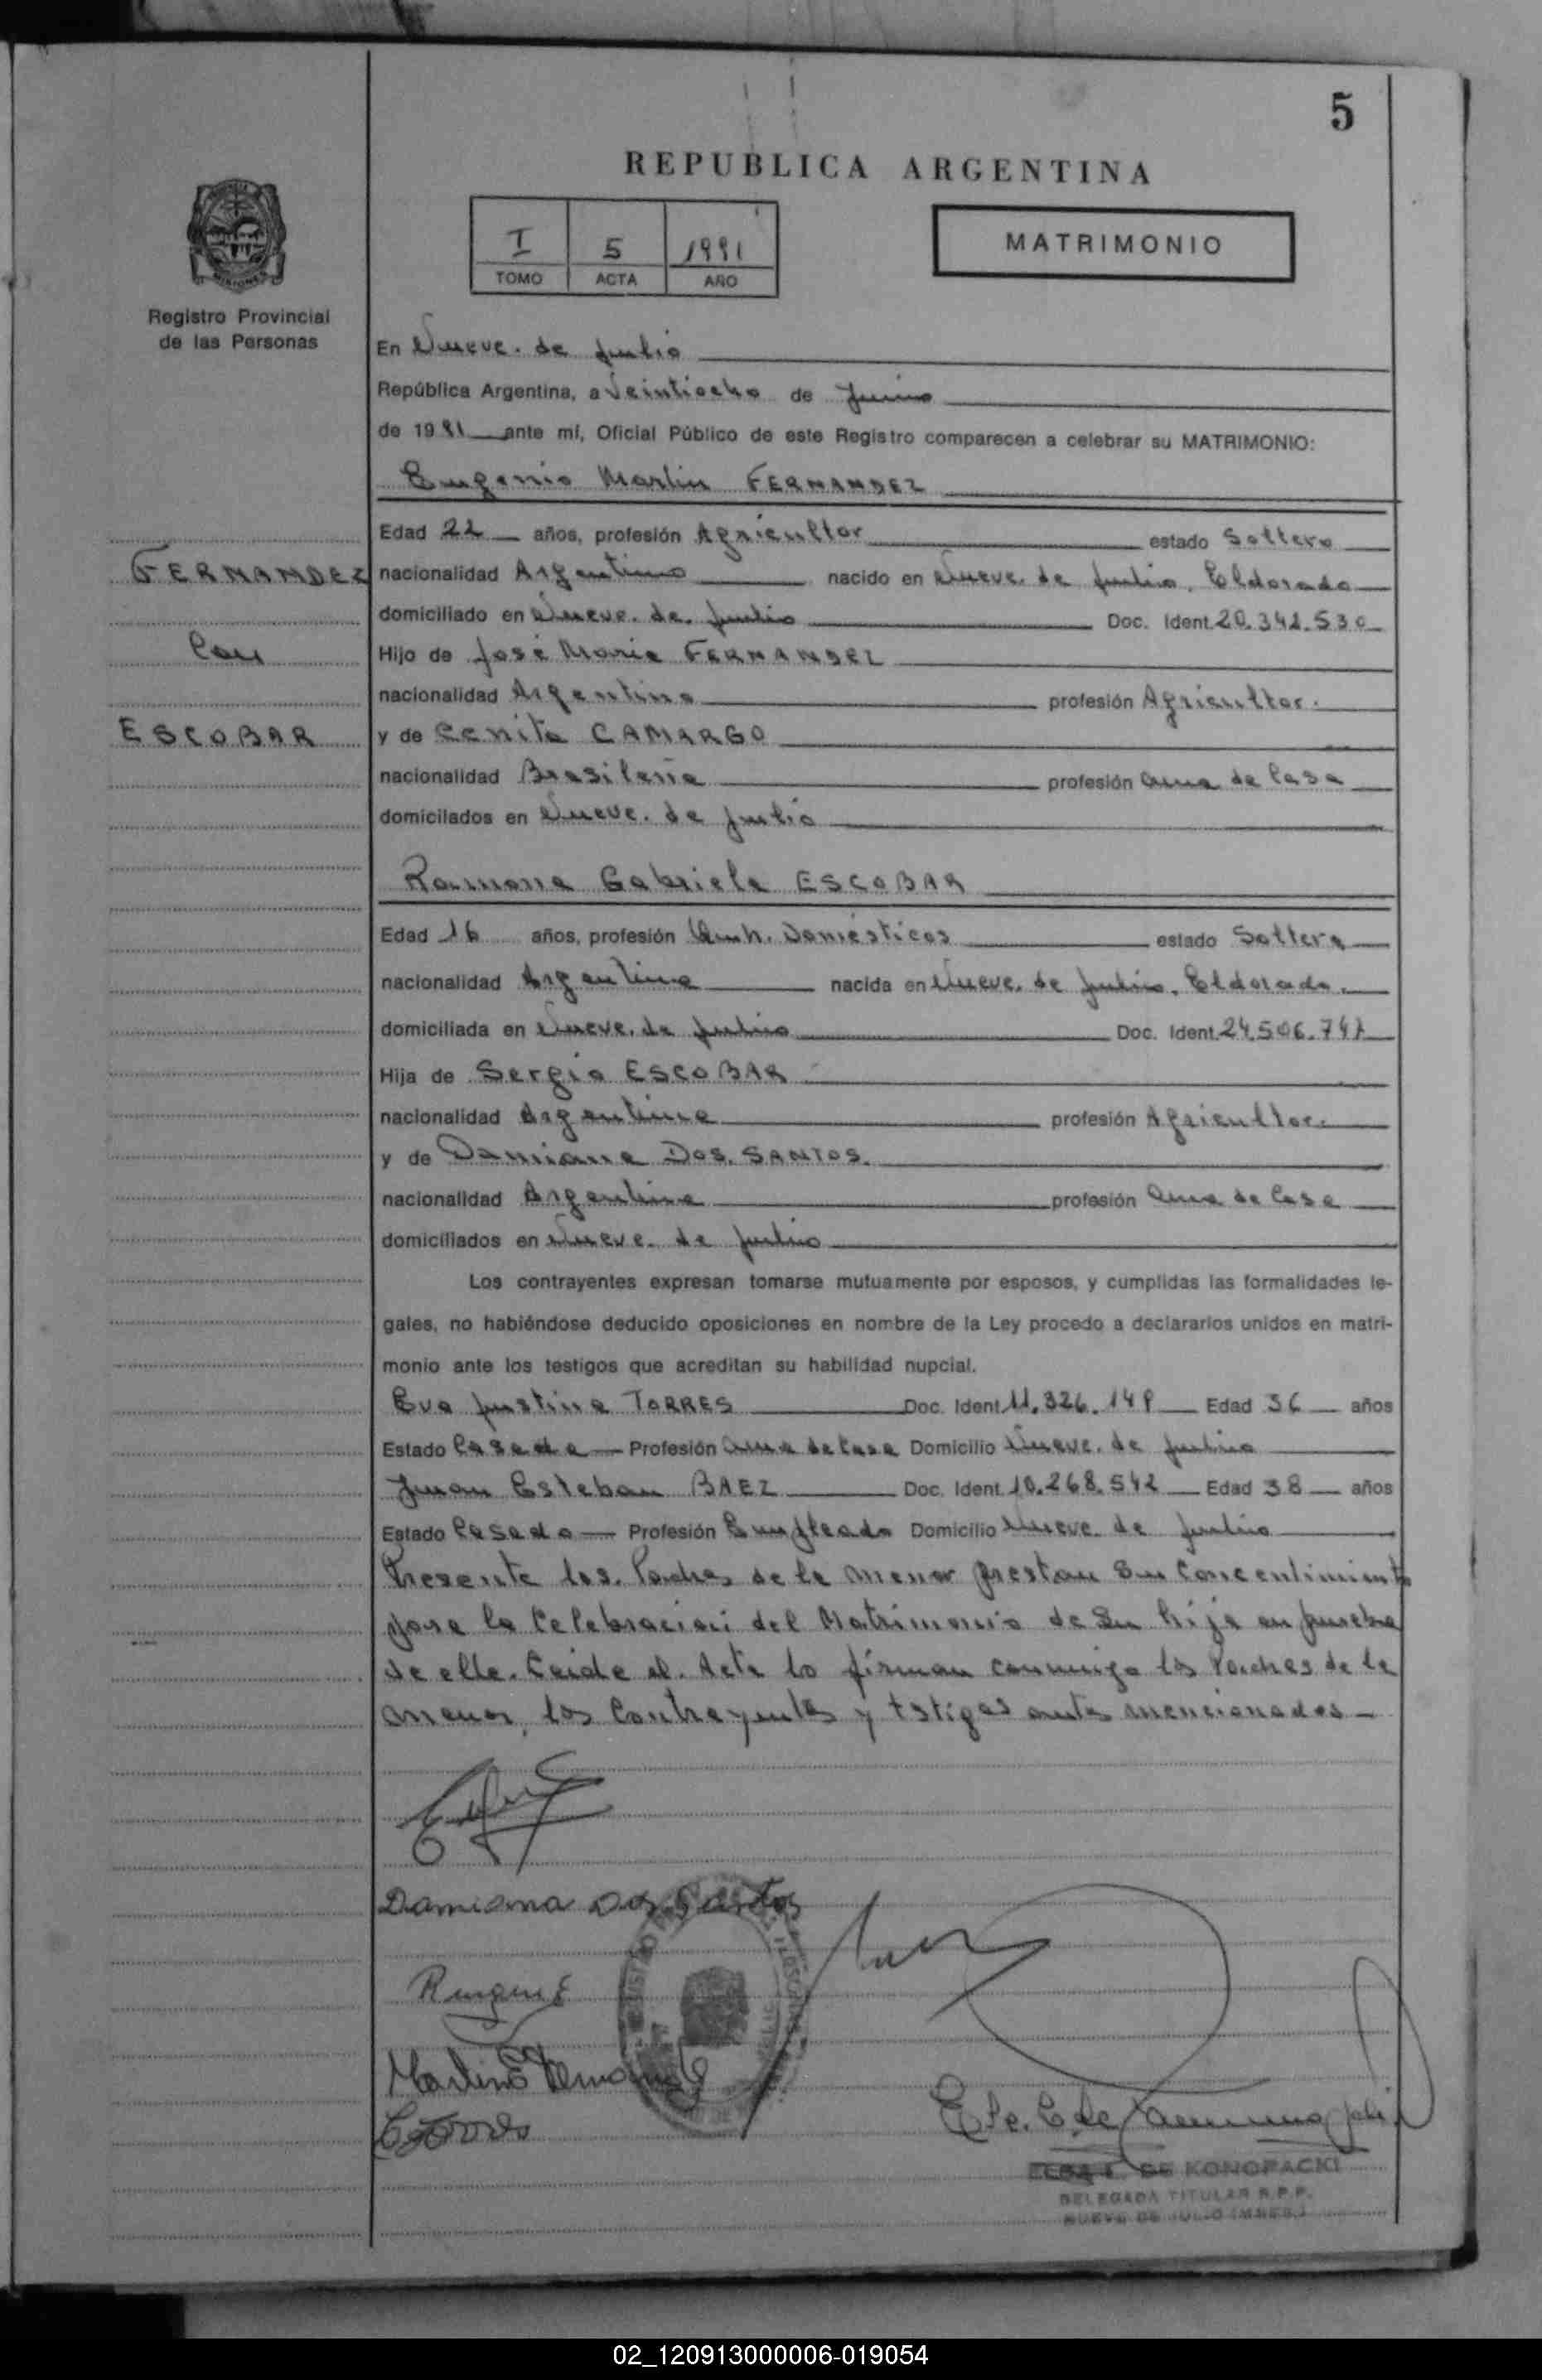 5
REPUBLICA ARGENTINA
I 5 1991
TOMO ACTA AÑO
MATRIMONIO
MISIONES
Registro Provincial
de las Personas
En Nueve. de Julio
República Argentina, a Veintiocho de Junio
de 1991 ante mí, Oficial Público de este Registro comparecen a celebrar su MATRIMONIO:
Eugenio Martin FERNANDEZ
Edad 22 años, profesión Agricultor estado Soltero
FERNANDEZ
nacionalidad Argentino nacido en Nueve. de Julio. Eldorado
domiciliado en Nueve. de. Julio Doc. Ident. 20.342.530
Con
Hijo de José Maria FERNANDEZ
nacionalidad Argentino profesión Agricultor.
ESCOBAR
y de CAMARGO
nacionalidad Brasileña profesión ama de Casa
domicilados en Nueve. de Julio
Ramona Gabriela ESCOBAR
Edad 16 años, profesión Domésticos estado Soltera
nacionalidad Argentina nacida en Nueve. de Julio. Eldorado.
domiciliada en Nueve. de Julio Doc. Ident. 24.506.747
Hija de Sergio ESCOBAR
nacionalidad Argentina profesión Agricultor.
y de Damiana DOS. SANTOS.
nacionalidad Argentina profesión ama de Casa
domiciliados en Nueve. de Julio
Los contrayentes expresan tomarse mutuamente por esposos, y cumplidas las formalidades le-
gales, no habiéndose deducido oposiciones en nombre de la Ley procedo a declararlos unidos en matri-
monio ante los testigos que acreditan su habilidad nupcial.
Eva Justina TORRES Doc. Ident. 11.326.149 Edad 36 años
Estado Casada Profesión ama de Casa Domicilio Nueve. de Julio
Juan Esteban BAEZ Doc. Ident. 10.268.542 Edad 38 años
Estado Casado Profesión Empleado Domicilio Nueve. de Julio
Presente los. Padres de la menor prestan su Concentimiento
para la Celebración del Matrimonio de su hija en prueba
de elle. Leida el. Acta lo firman conmigo los Padres de la
menor, los Contrayentes y testigos antes mencionados
Damiana Dos Santos
Martin E
DE KONOPACKI
DELEGADA TITULAR R.P.P.
NUEVE DE JULIO (MNES.)
02_120913000006-019054